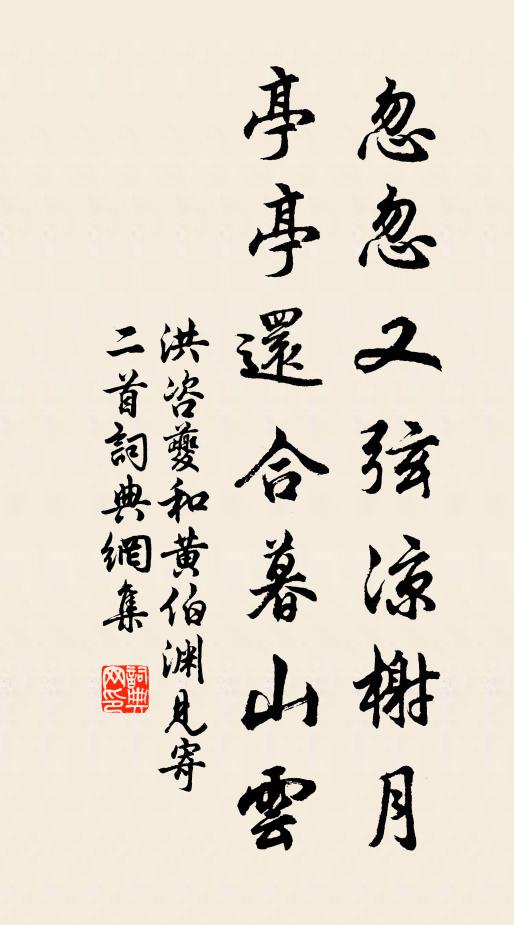 忽忽又弦涼榭月
亭亭還合暮山雲
洪咨夔和黄伯渊見寄
二首詞典網集
詞典
网印